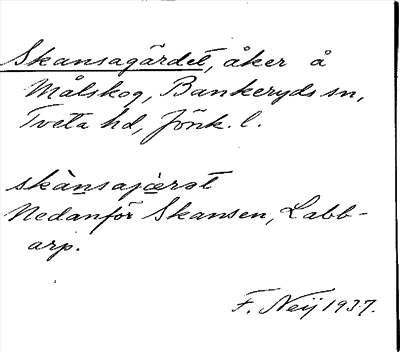 Skansagärdet, åker å
Målskog, Bankeryds sn,
Tveta hd, Jönk. l.
skànsajærat
Nedanför Skansen, Labb-
arp.
F. Neij 1937.